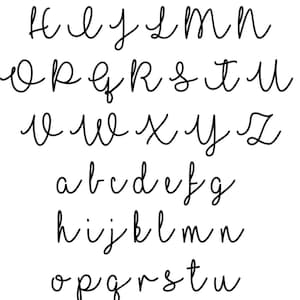 H I J L M N
O P Q R S T U
V W X Y Z
a b c d e f g
h i j k l m n
o p q r s t u